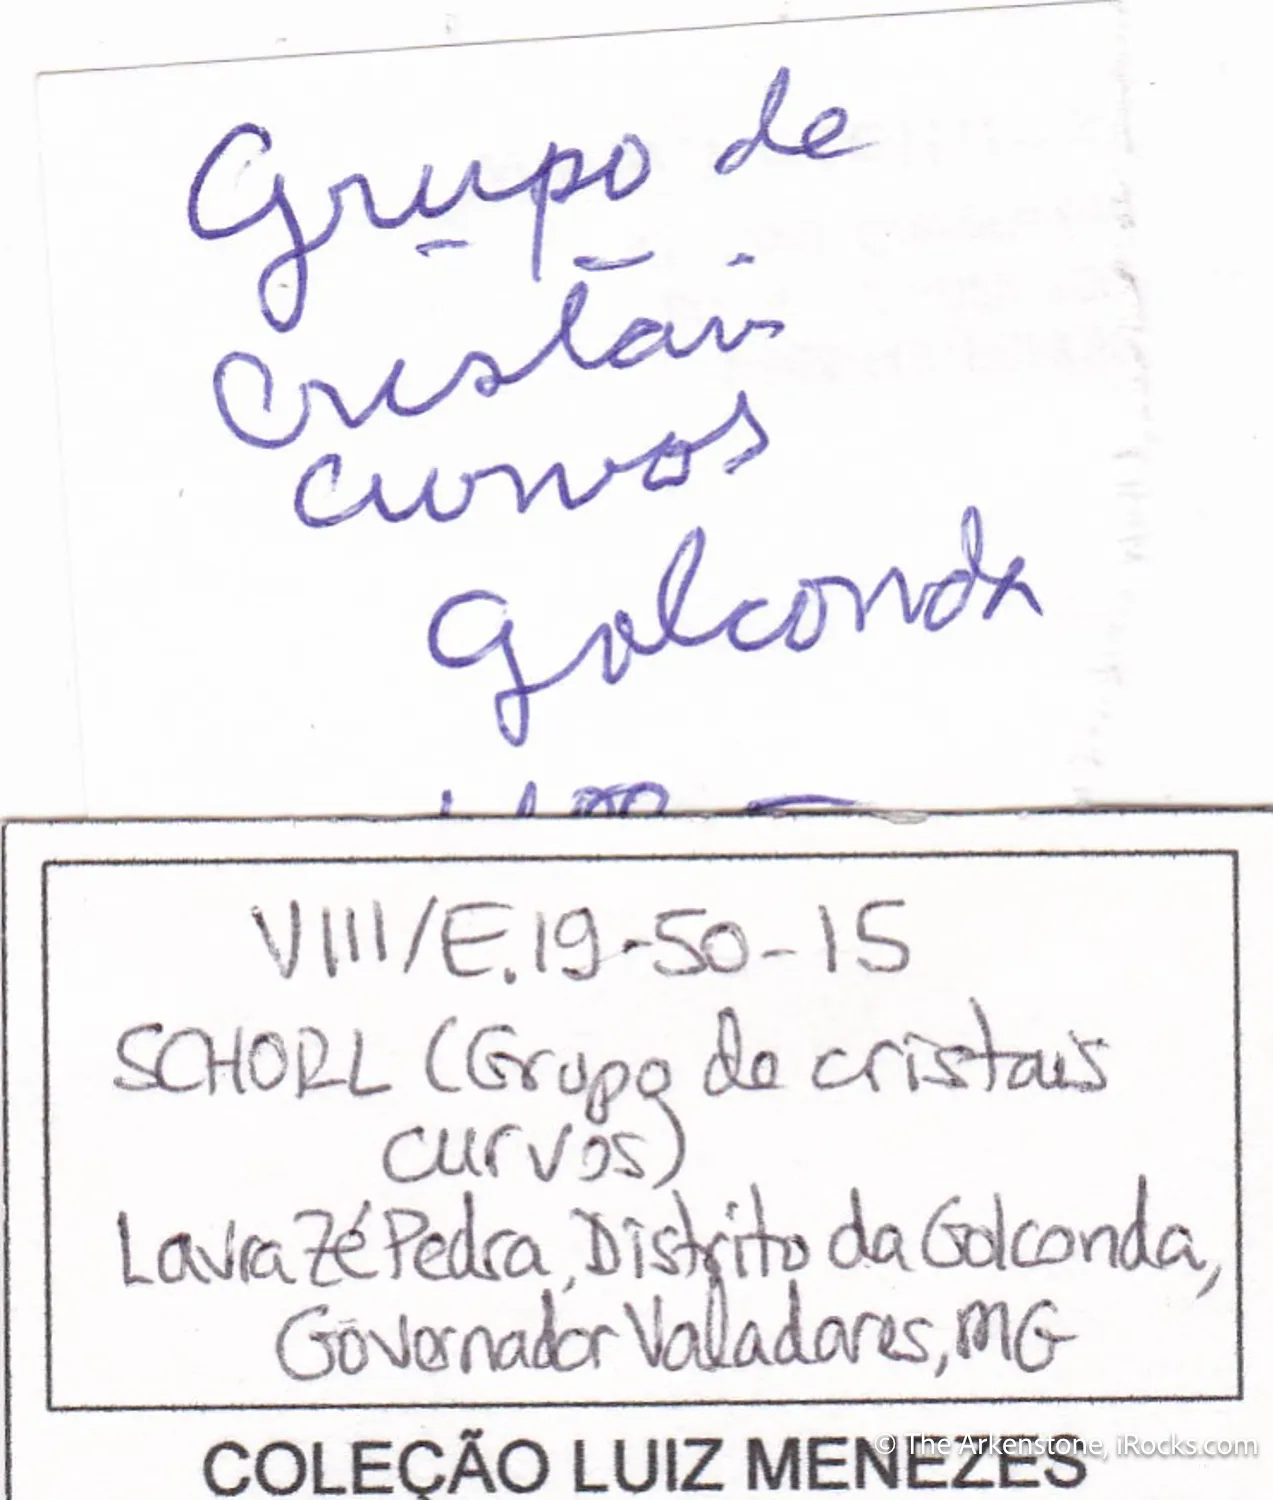 Grupo de
Cristais
curvos
Golconda
VIII/E.19-50-15
SCHORL (Grupo de cristais
curvos)
Lavra Zé Pedra, Distrito da Golconda,
Governador Valadares, MG
COLEÇÃO LUIZ MENEZES
© The Arkenstone, iRocks.com